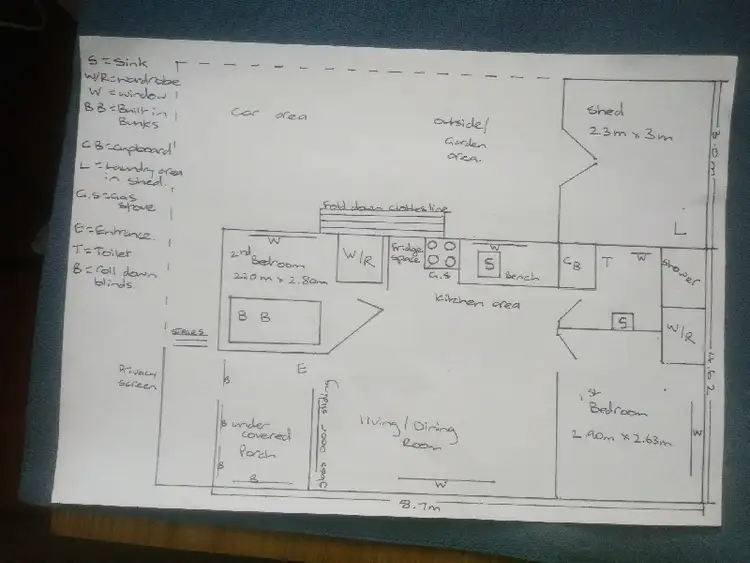 S = Sink
W/R = wardrobe
W = window
B B = Built in
Bunks
CB = cupboard
L = Laundry area
in shed.
G.S = Gas
stove
E = Entrance.
T = Toilet
B = roll down
blinds
car area
outside/
Garden
area.
shed
2.3m x 3m
3.0m
L
Fold down clothesline
W
2nd
Bedroom
2.20m x 2.80m
W/R
Fridge
space
G.S
W
S
Bench
CB
T
W
shower
kitchen area
B B
S
W/R
4.62
STAIRS
Privacy
screen
E
B
B
B
B
under
covered
Porch
Glass door sliding
Living/Dining
Room
W
1st
Bedroom
2.90m x 2.63m
W
8.7m